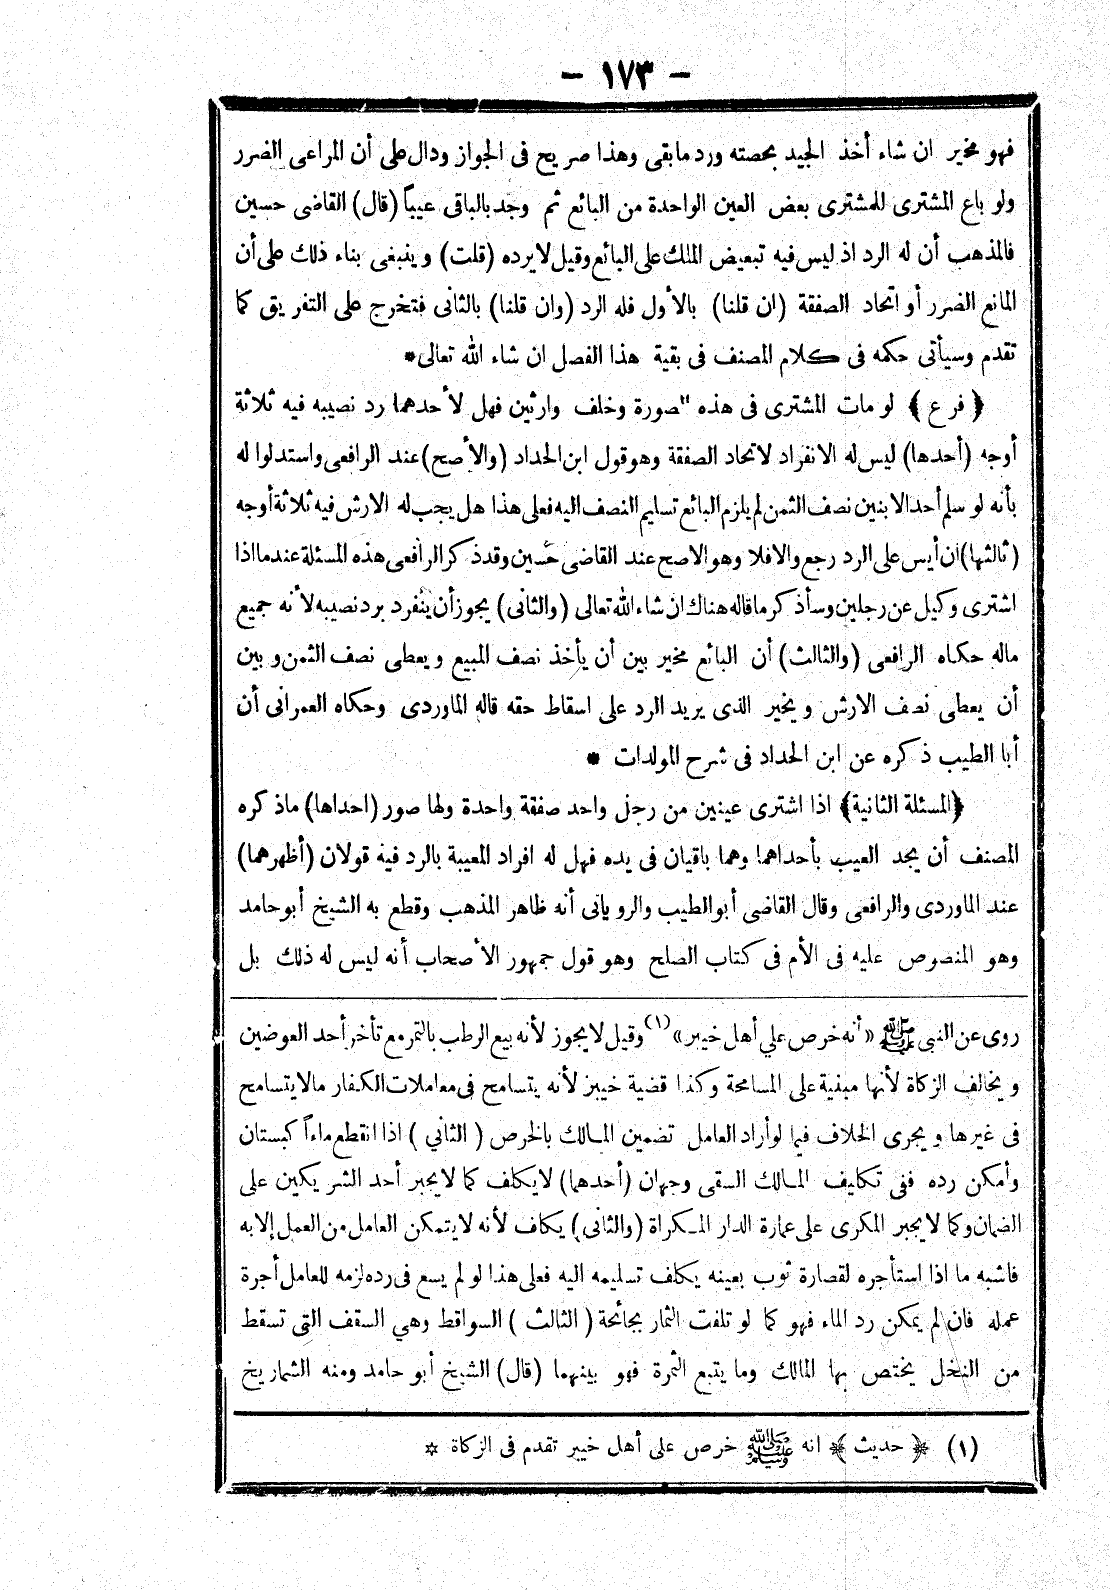 - ١٧٣ -
فهو مخير ان شاء أخذ الجيد بحصته ورد مابقى وهذا صريح فى الجواز ودال على أن المراعى الضرر
ولو باع المشترى للمشترى بعض العين الواحدة من البائع ثم وجد بالباقى عيباً (قال) القاضى حسين
فالمذهب أن له الرد اذ ليس فيه تبعيض الملك على البائع وقيل لا يرده (قلت) وينبغى بناء ذلك على أن
المانع الضرر أو اتحاد الصفقة (ان قلنا) بالأول فله الرد (وان قلنا) بالثانى فتخرج على التفريق كما
تقدم وسيأتى حكمه فى كلام المصنف فى بقية هذا الفصل ان شاء الله تعالى*
﴿فرع﴾ لو مات المشترى فى هذه الصورة وخلف وارثين فهل لأحدهما رد نصيبه فيه ثلاثة
أوجه (أحدها) ليس له الانفراد لاتحاد الصفقة وهو قول ابن الحداد (والأصح) عند الرافعى واستدلوا له
بأنه لو سلم أحد الابنين نصف الثمن لم يلزم البائع تسليم النصف اليه فعلى هذا هل يجب له الارش فيه ثلاثة أوجه
(ثالثها) ان أيس على الرد رجع والا فلا وهو الاصح عند القاضى حسين وقد ذكر الرافعى هذه المسئلة عندما اذا
اشترى وكيل عن رجلين وسأذكر ما قاله هناك ان شاء الله تعالى (والثانى) يجوز أن ينفرد برد نصيبه لأنه جميع
ماله حكاه الرافعى (والثالث) أن البائع مخير بين أن يأخذ نصف المبيع ويعطى نصف الثمن وبين
أن يعطى نصف الارش ويخير الذى يريد الرد على اسقاط حقه قاله الماوردى وحكاه العمرانى أن
أبا الطيب ذكره عن ابن الحداد فى شرح المولدات *
﴿المسئلة الثانية﴾ اذا اشترى عينين من رجل واحد صفقة واحدة ولها صور (احداها) ماذكره
المصنف أن يجد العيب بأحداهما وهما باقيان فى يده فهل له افراد المعيبة بالرد فيه قولان (أظهرهما)
عند الماوردى والرافعى وقال القاضى أبو الطيب والرويانى أنه ظاهر المذهب وقطع به الشيخ أبو حامد
وهو المنصوص عليه فى الأم فى كتاب الصلح وهو قول جمهور الأصحاب أنه ليس له ذلك بل
روى عن النبى ﷺ «أنه خرص علي أهل خيبر» (١) وقيل لا يجوز لأنه بيع الرطب بالتمر مع تأخر أحد العوضين
ويخالف الزكاة لأنها مبنية على المسامحة وكذا قضية خيبر لأنه يتسامح فى معاملات الكفار مالا يتسامح
فى غيرها ويجرى الخلاف فيما لو أراد العامل تضمين المالك بالخرص (الثاني) اذا انقطع ماءاً كبستان
وأمكن رده ففى تكليف المالك السقى وجهان (أحدهما) لا يكلف كما لا يجبر أحد الشريكين على
الضمان وكما لا يجبر المكرى على عمارة الدار المكراة (والثانى) يكلف لأنه لا يتمكن العامل من العمل إلا به
فاشبه ما اذا استأجره لقصارة ثوب بعينه يكلف تسليمه اليه فعلى هذا لو لم يسع فى رده لزمه للعامل أجرة
عمله فان لم يمكن رد الماء فهو كما لو تلفت الثمار بجائحة (الثالث) السواقط وهي السقف التي تسقط
من النخل يختص بها المالك وما يتبع الثمرة فهو بينهما (قال) الشيخ أبو حامد ومنه الشماريخ
(١) ﴿حديث﴾ انه ﷺ خرص على أهل خيبر تقدم فى الزكاة *